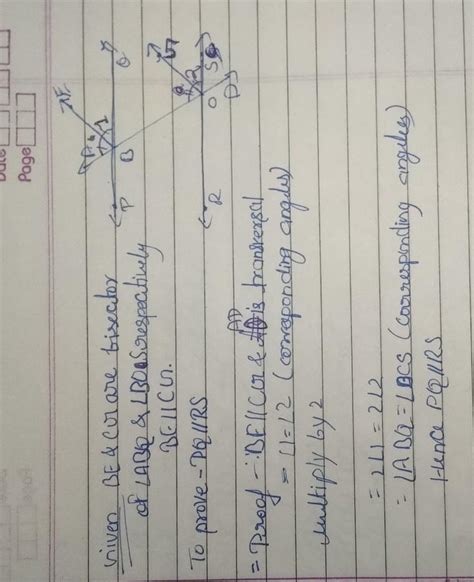 Date
Page
Given BE & CG are bisector
of ∠ABQ & ∠BCS respectively
BE || CG.
To prove - PQ || RS
= Proof - ∵ BE || CG & AD is transversal
= ∠1 = ∠2 (corresponding angles)
Multiply by 2
= 2∠1 = 2∠2
= ∠ABQ = ∠BCS (corresponding angles)
Hence PQ || RS
E
A
1
Q
B
P
G
2
S
C
D
R